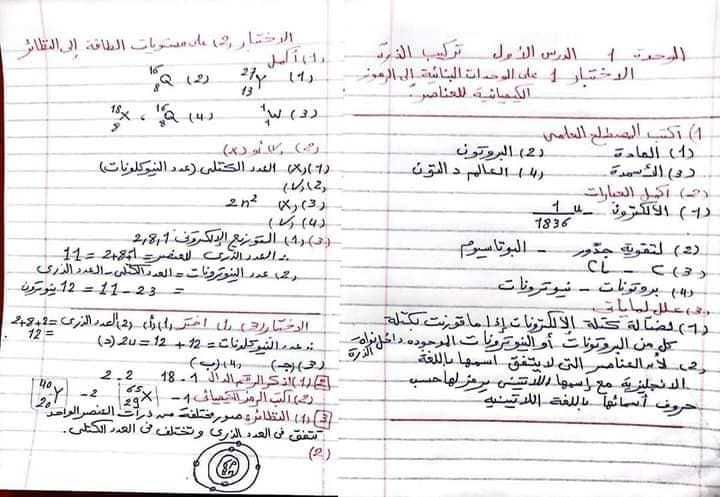 الوحدة 1 الدرس الأول تركيب الذرة
الاختبار 1 على الوحدات البنائية إلى الرموز
الكيميائية للعناصر
1) أكتب المصطلح العلمى
(1) المادة (2) البروتون
(3) الأسمدة (4) العالم دالتون
2) أكمل العبارات
(1) الألكترون – 1/1836 u
(2) لتقوية جذور – البوتاسيوم
(3) C – CL
(4) بروتونات – نيوترونات
3) علل لما يأتى
(1) لضآلة كتلة الألكترونات إذا ما قورنت بكتلة
كل من البروتونات أو النيوترونات الموجوده داخل نواه الذرة
(2) لأن العناصر التى لا يتفق اسمها باللغة
الانجليزية مع اسمها اللاتينى يرمز لها حسب
حروف أسمائها باللغة اللاتينيه
الاختبار (2) على مستويات الطاقة إلى النظائر
(1) أكمل
(1) ²⁷₁₃Y (2) ¹⁶₈Q
(3) ¹₁W (4) ¹⁶₈Q ، ¹⁸₈X
(2) √ أو (x)
(1) (x) العدد الكتلى (عدد النيوكلونات)
(2) (√)
(3) (x) 2n²
(4) (√)
(3) (1) التوزيع الإلكترونى 2,8,1
∴ العدد الذرى للعنصر = 2+8+1 = 11
(2) عدد النيوترونات = العدد الكتلى – العدد الذرى
= 23 - 11 = 12 نيوترون
الاختبار (3) (1) اختر (1) (أ) (2) العدد الذرى = 2+8+2
= 12
∴ عدد النيوكليونات = 12 + 12 = 24 (د)
(3) (جـ) (4) (ب)
2 (1) اذكر الرقم الدال 1- 18 2- 2
(2) اكتب الرمز الكيميائى 1- ⁶⁵₂₉X 2- ⁴⁰₂₀Y
3 (1) النظائر: صور مختلفة من ذرات العنصر الواحد
تتفق فى العدد الذرى وتختلف فى العدد الكتلى.
(2)
8P
8n